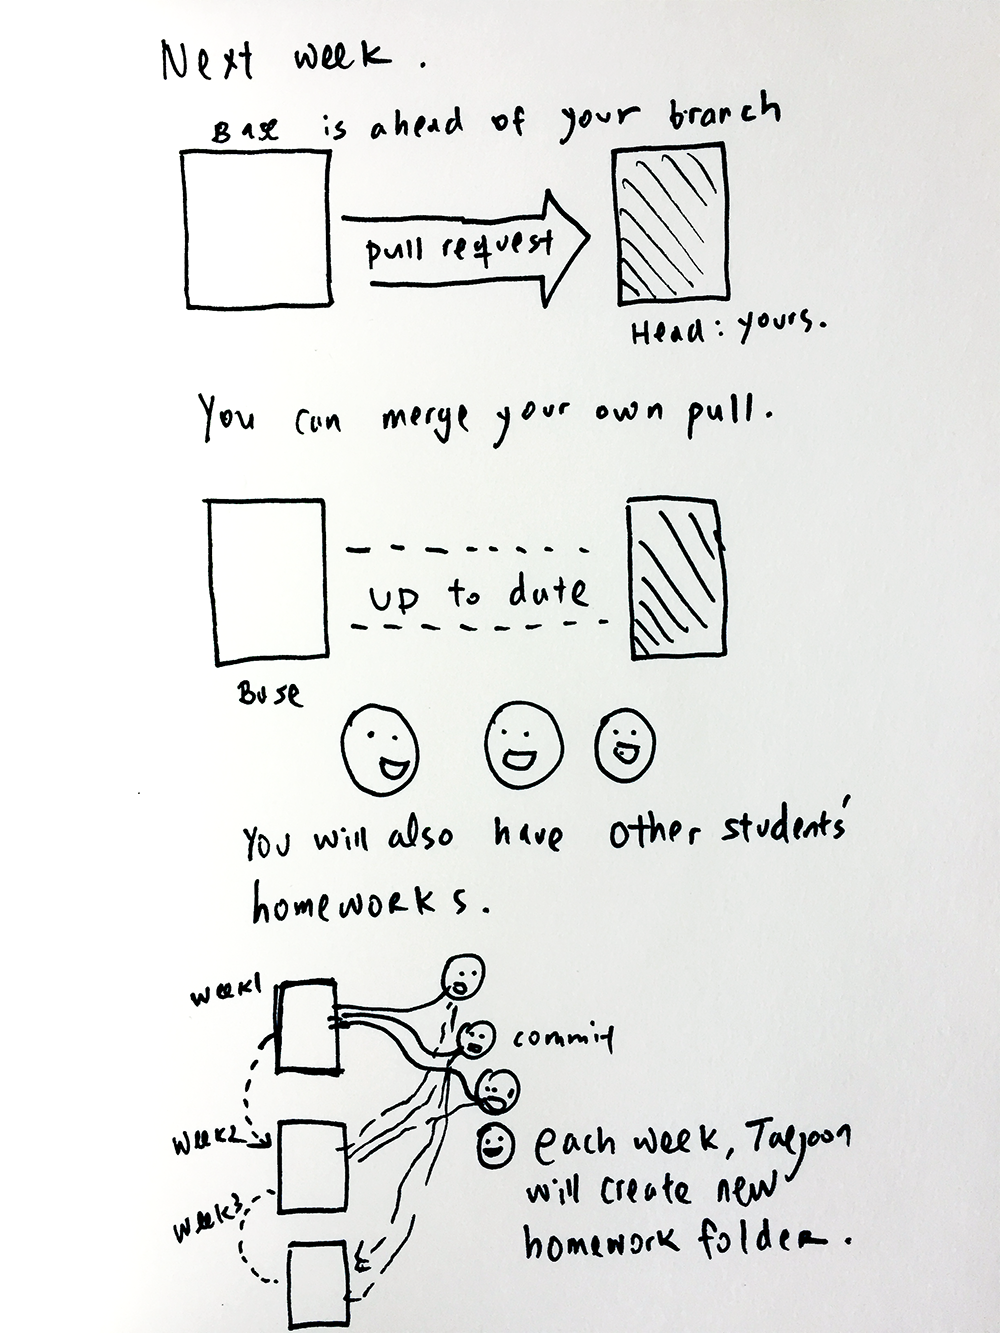 Next week.
Base is ahead of your branch
pull request
Head: yours.
You can merge your own pull.
up to date
Base
You will also have other students'
homeworks.
week1
commit
week2
each week, Taeyoon
will create new
week3
homework folder.